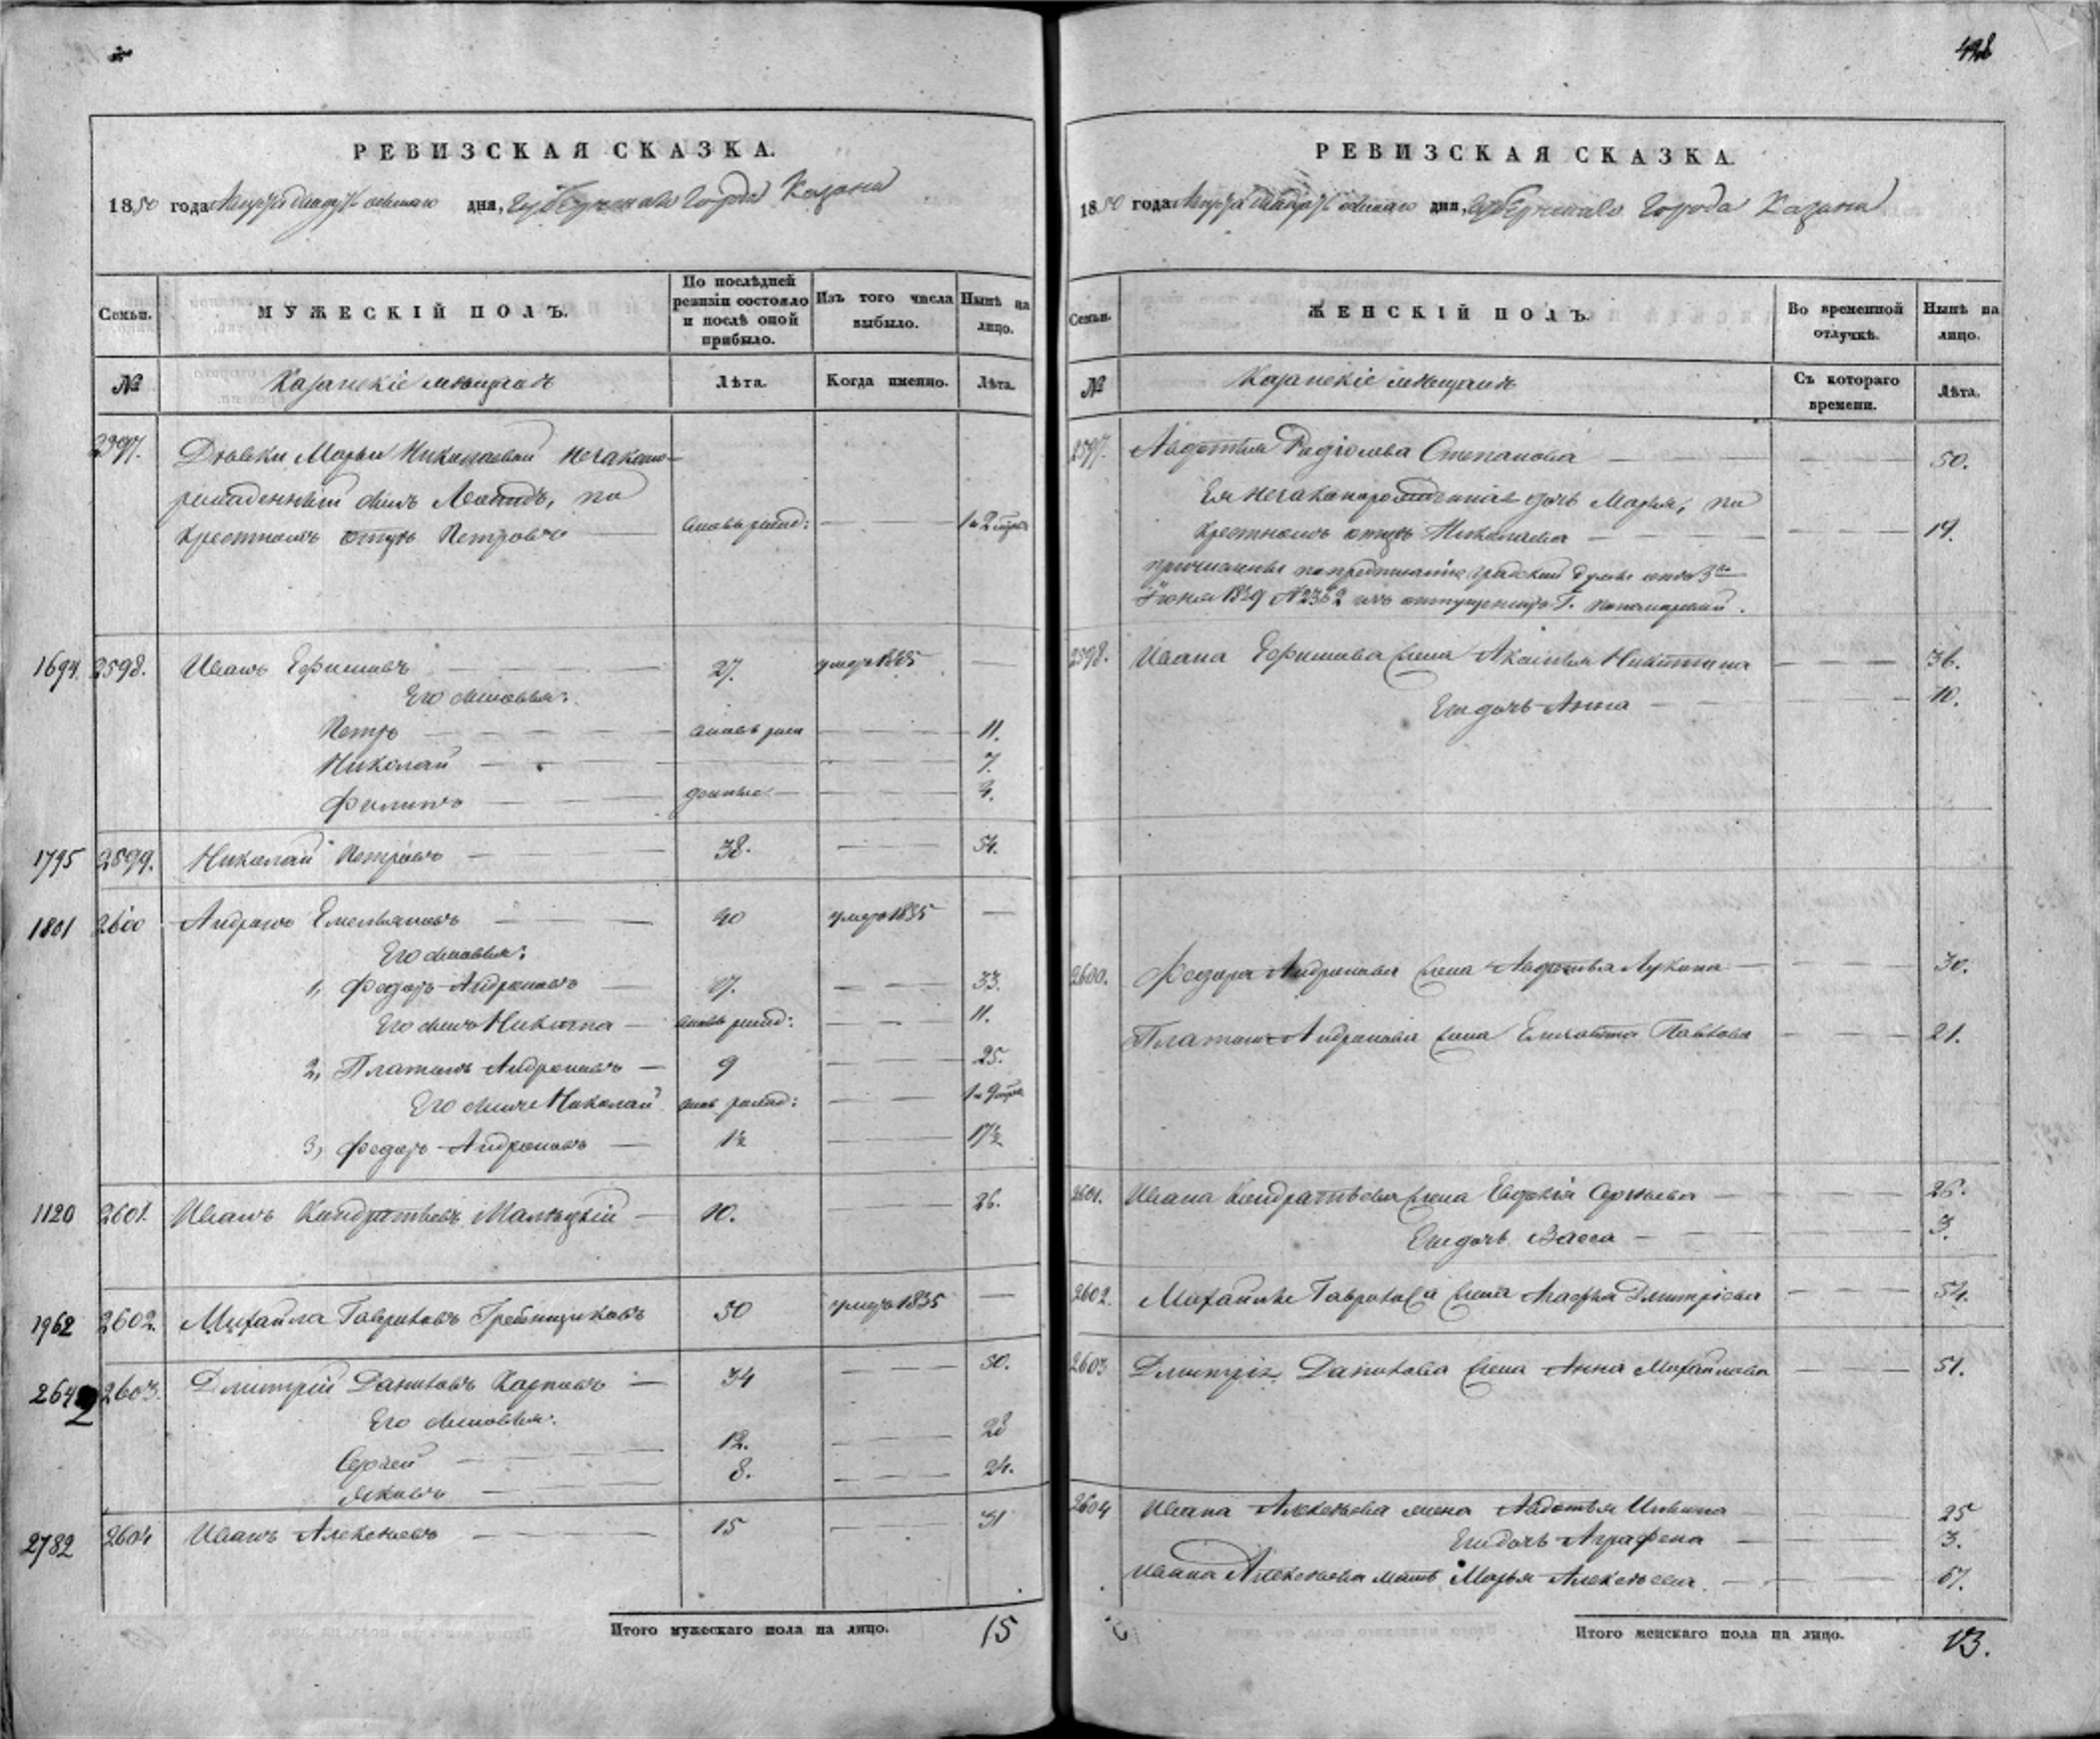 РЕВИЗСКАЯ СКАЗКА.
1850 года дня, Губернскаго Города Казани
Семьи.
МУЖЕСКІЙ ПОЛЪ.
По послѣдней ревизіи состояло и послѣ оной прибыло.
Изъ того числа выбыло.
Нынѣ на лицо.
№
Казанскіе мѣщане
Лѣта.
Когда именно.
Лѣта.
2597. Дѣвки Марьи Николаевой незаконо-
рожденный сынъ по
крестному отцу Петровъ — вновь рожд: — —
1694 2598. Иванъ Ефимовъ — 27. умеръ 1835 —
Его сыновья:
Петръ — — вновь рож — 11.
Николай — — — 7.
Филипъ — — — 3.
1795 2599. Николай Петровъ — 38. — 54.
1801 2600 Андронъ Емельяновъ — 40 умеръ 1835 —
Его сыновья:
1, Федоръ Андроновъ — 17. — 33.
Его сынъ Никита — вновь рожд: — 11.
2, Платонъ Андроновъ — 9 — 25.
Его сынъ Николай вновь рожд: —
3, Федоръ Андроновъ — 1½ — 17½
1120 2601. Иванъ Кондратьевъ — 10. — 26.
1962 2602. Михайла Гавриловъ Гребенщиковъ 50 умеръ 1835 —
2603. Дмитрій Даниловъ Карповъ — 34 — 50.
Его сыновья:
Сергей — 12. — 28
Яковъ — 8. — 24.
2782 2604 Иванъ Алексеевъ — 15 — 31
Итого мужескаго пола на лицо. 15
РЕВИЗСКАЯ СКАЗКА.
1850 года дня, Губернскаго Города Казани
Семьи.
ЖЕНСКІЙ ПОЛЪ.
Во временной отлучкѣ.
Нынѣ на лицо.
№
Казанскіе мѣщане
Съ котораго времени.
Лѣта.
2597. Авдотья Степанова — — 50.
Ея незаконорожденная дочь Марья, по
крестному отцу Николаева — — 19.
2598. Ивана Ефимова жена Никитина — 36.
Ея дочь Анна — — 10.
2600. Федора Андронова жена Авдотья Лукина — 30.
Платона Андронова жена Павлова — 21.
2601. Ивана Кондратьева жена Евдокія Сергеева — 26.
Ея дочь Васса — — 3.
2602. Михайлы Гаврилова жена Дмитріева — 54.
2603 Дмитрія Данилова жена Анна Михайлова — 51.
2604 Ивана Алексеева жена Авдотья — 25
Ея дочь Аграфена — — 3.
Ивана Алексеева мать Марья Алексеева — 67.
Итого женскаго пола на лицо. 13.